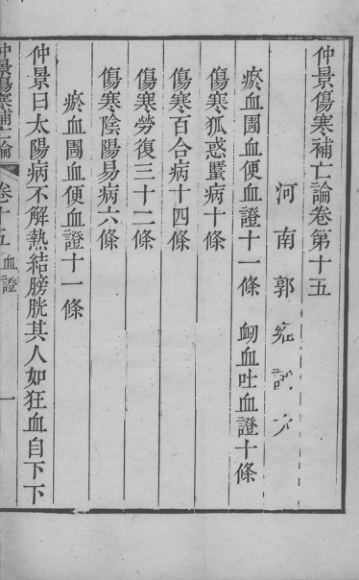 仲景傷寒補亡論卷第十五
河南郭
瘀血圊血便血證十一條　衂血吐血證十條
傷寒狐惑䘌病十條
傷寒百合病十四條
傷寒勞復三十二條
傷寒陰陽易病六條
瘀血圊血便血證十一條
仲景曰太陽病不解熱結膀胱其人如狂血自下下
仲景傷寒補亡論　卷十五　血證　一